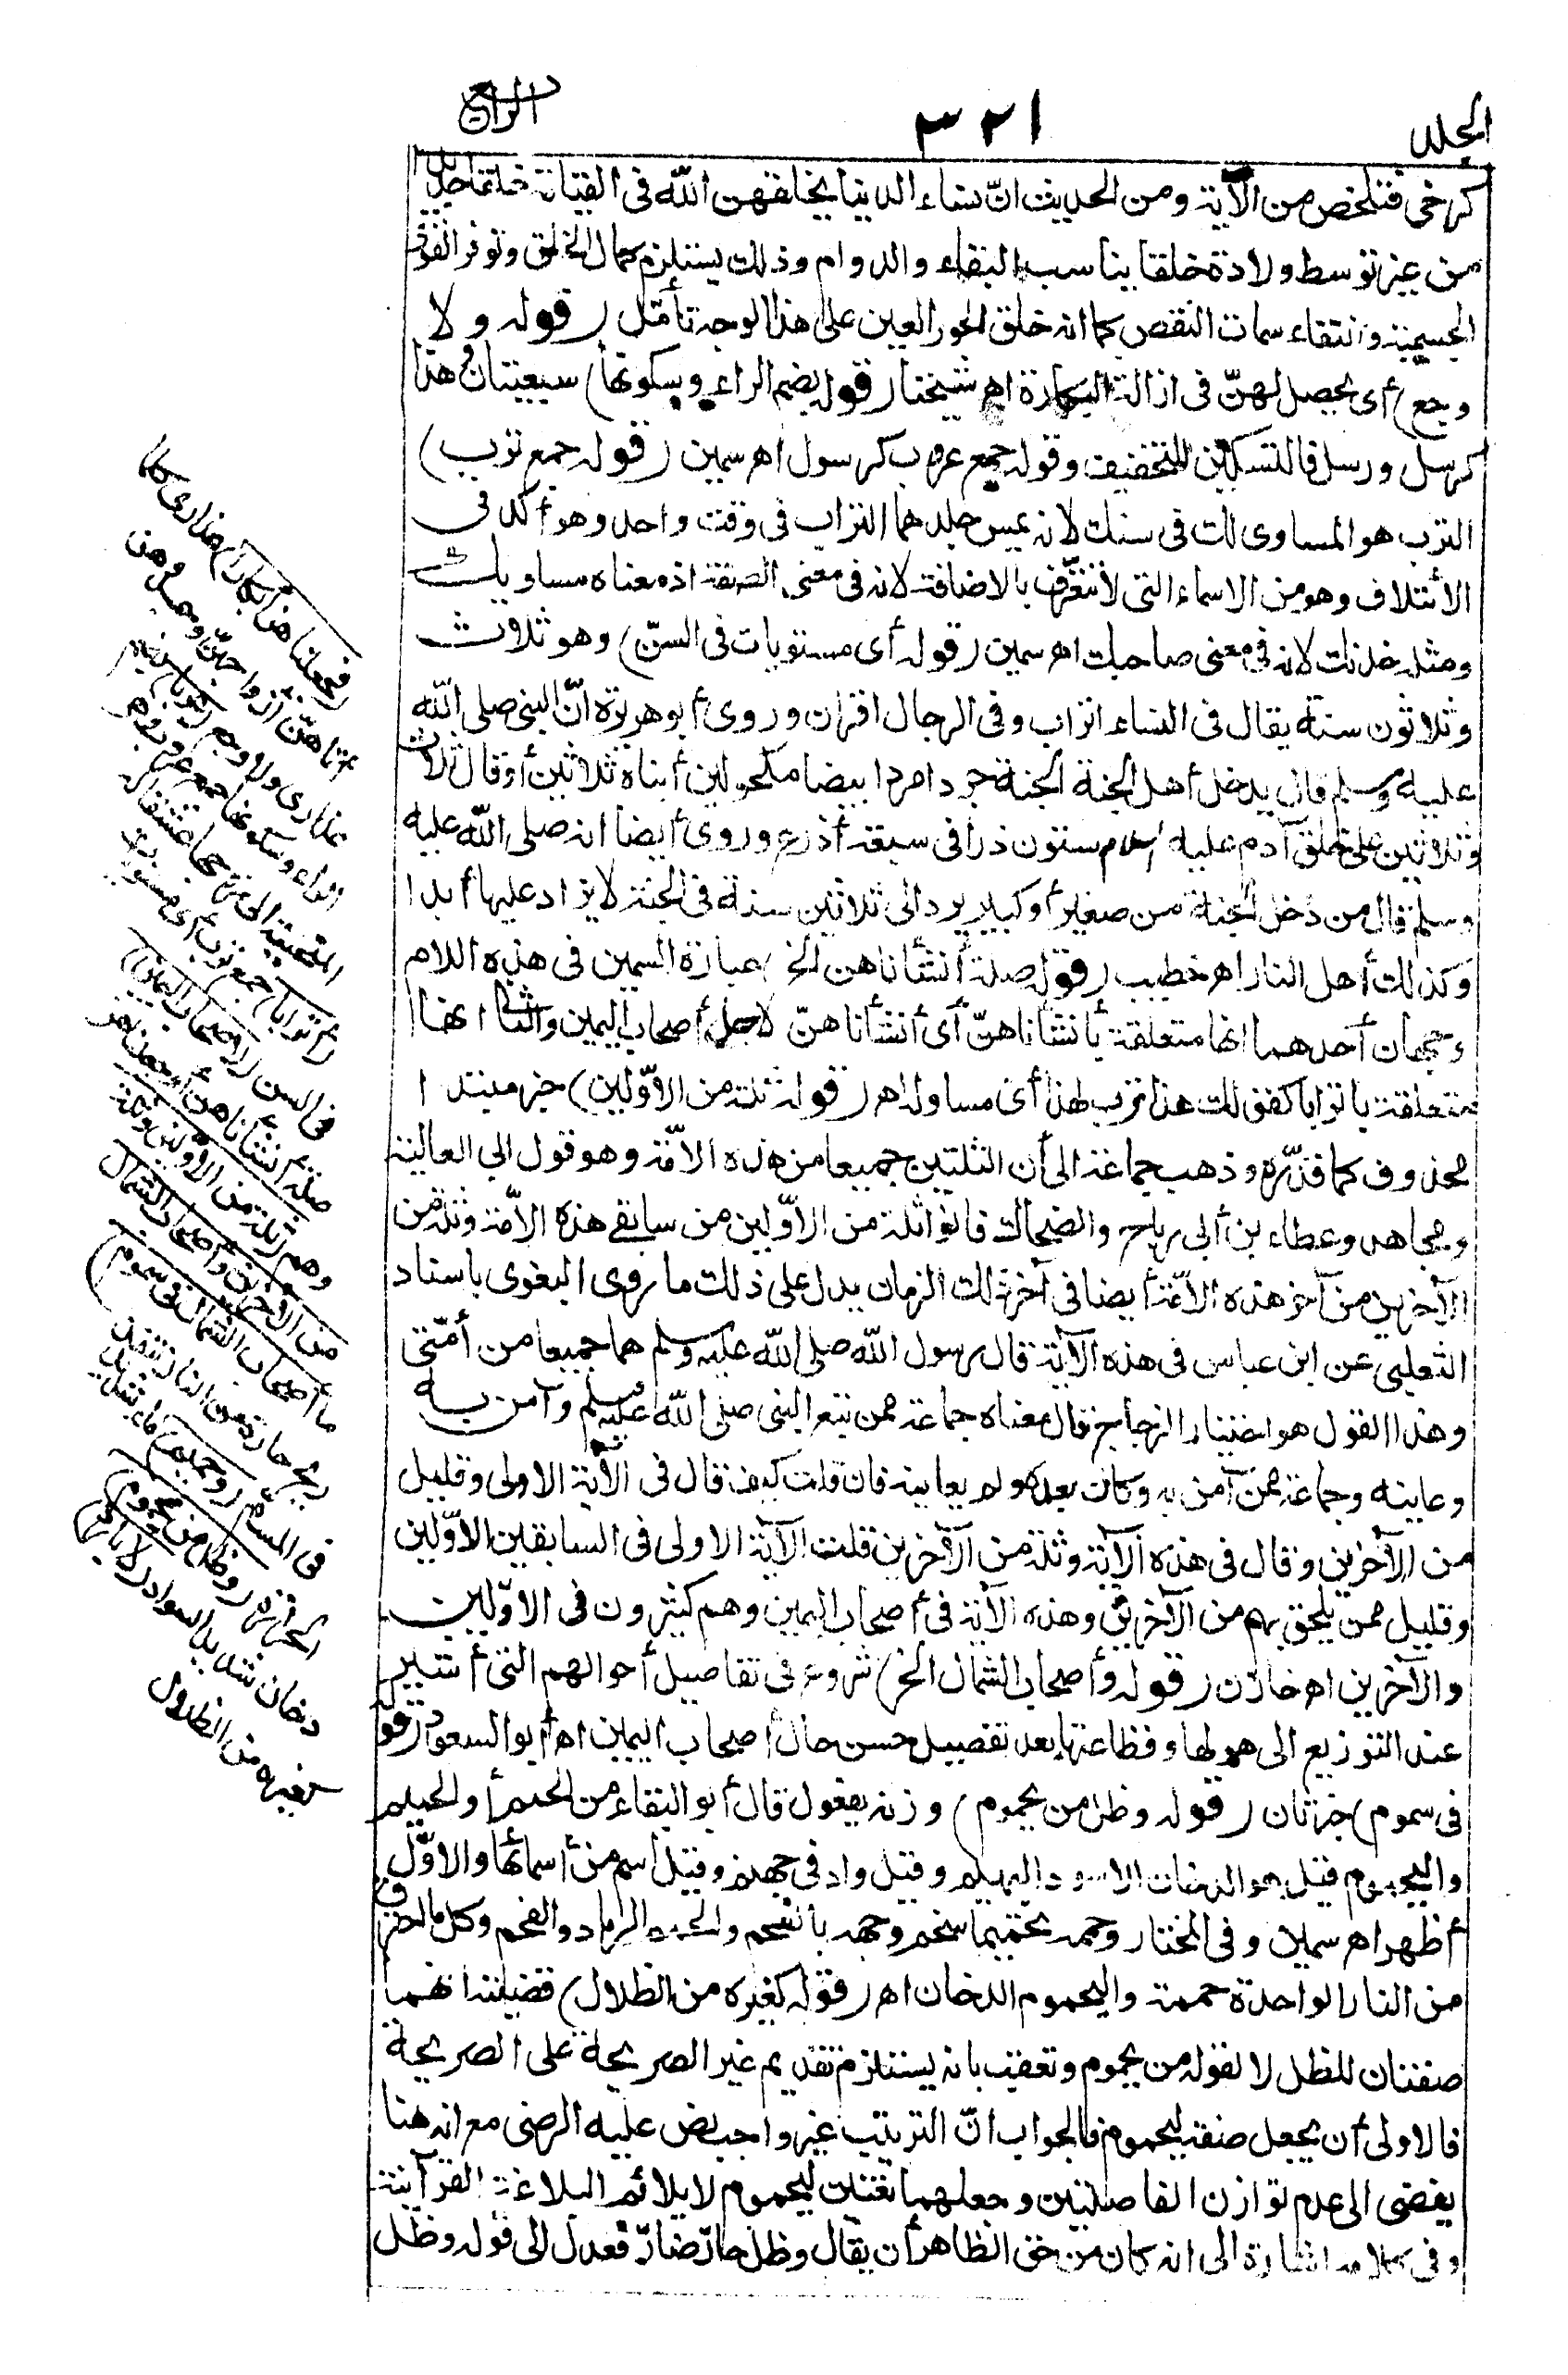 المجلد
٣٢١
الرابع
كرخى فتلخص من الآية ومن الحديث انّ نساء الدنيا يخلقهن الله فى القيامة خلقا جديدا
من غير توسط ولادة خلقا يناسب البقاء والدوام وذلك يستلزم كمال الخلق وتوفر القوى
الجسمية وانتفاء سمات النقص كما انه خلق الحور العين على هذا الوجه تأمّل (قوله ولا
وجع) أى يحصل لهنّ فى ازالة البكارة اهـ شيخنا (قوله بضم الراء وسكونها) سبعيتان هذا
كرسل ورسل فالتسكين للتخفيف وقوله جمع عروب كرسول اهـ سمين (قوله جمع ترب)
الترب هو المساوى لك فى سنك لانه يمس جلدهما التراب فى وقت واحد وهو أكد فى
الأئتلاف وهو من الاسماء التى لا تتعرّف بالاضافة لانه فى معنى الصفة اذ معناه مساويك
ومثله خدنك لانه فى معنى صاحبك اهـ سمين (قوله أى مستويات فى السنّ) وهو ثلاث
وثلاثون سنة يقال فى النساء اتراب وفى الرجال اقران وروى أبو هريرة انّ النبى صلى الله
عليه وسلم قال يدخل أهل الجنة الجنة جردا مردا بيضا مكحولين أبناء ثلاثين أو قال ثلاث
وثلاثين على خلق آدم عليه السلام ستون ذراعا فى سبعة أذرع وروى أيضا انه صلى الله عليه
وسلم قال من دخل الجنة من صغير أو كبير يرد الى ثلاثين سنة فى الجنة لا يزاد عليها أبدا
وكذلك أهل النار اهـ خطيب (قوله صلة أنشأناهن الخ) عبارة السمين فى هذه اللام
وجهان أحدهما انها متعلقة بأنشأناهنّ أى أنشأناهنّ لاجل أصحاب اليمين والثانى انها
متعلقة باترابا كقولك هذا ترب لهذا أى مساو له اهـ (قوله ثلة من الاوّلين) خبر مبتدا
محذوف كما قدّره وذهب جماعة الى أن الثلتين جميعا من هذه الامّة وهو قول ابى العالية
ومجاهد وعطاء بن أبى رباح والضحاك قالوا ثلة من الاوّلين من سابقى هذه الامّة وثلة من
الآخرين من آخر هذه الامّة أيضا فى آخر ذلك الزمان يدل على ذلك ما روى البغوى باسناد
الثعلبى عن ابن عباس فى هذه الآية قال رسول الله صلى الله عليه وسلم هما جميعا من أمّتى
وهذا القول هو اختيار الزجاج قال معناه جماعة ممن تبع النبى صلى الله عليه وسلم وآمن به
وعاينه وجماعة ممن آمن به وكان بعده ولم يعاينه فان قلت كيف قال فى الآية الاولى وقليل
من الآخرين وقال فى هذه الآية وثلة من الآخرين قلت الآية الاولى فى السابقين الاوّلين
وقليل ممن يلحق بهم من الآخرين وهذه الآية فى أصحاب اليمين وهم كثيرون فى الاوّلين
والآخرين اهـ خازن (قوله وأصحاب الشمال الخ) شروع فى تفاصيل أحوالهم التى أشير
عند التوزيع الى هولها وفظاعتها بعد تفصيل حسن حال أصحاب اليمين اهـ أبو السعود (قوله
فى سموم) خبر ثان (قوله وظل من يحموم) وزنه يفعول قال أبو البقاء من الحمم أو الحميم
واليحموم قيل هو الدخان الاسود البهيم وقيل واد فى جهنم وقيل اسم من أسمائها والاوّل
أظهر اهـ سمين وفى المختار وحممه تحميما سخم وجهه بالفحم والحمم الرماد والفحم وكل ما احترق
من النار الواحدة حممة واليحموم الدخان اهـ (قوله كغيره من الظلال) قضيته انهما
صفتان للظل لا لقوله من يحموم وتعقب بانه يستلزم تقديم غير الصريحة على الصريحة
فالاولى أن يجعل صفة ليحموم فالجواب انّ الترتيب غير واجب نص عليه الرضى مع انه هنا
يفضى الى عدم توازن الفاصلتين وجعلهما نعتين ليحموم لا يلائم البلاغة القرآنية
وفى كلامه اشارة الى انه كان من حق الظاهر أن يقال وظل حارّ ضارّ فعدل الى قوله وظل
(فجعلناهن أبكارا) عذارى كلما
أتاهنّ أزواجهنّ وجدوهن
عذارى ولا وجع (عربا) بضم
الراء وسكونها جمع عروب وهى
المتحببة الى زوجها عشقا له
(أترابا) جمع ترب أى مستويات
فى السن (لاصحاب اليمين)
صلة أنشأناهن أو جعلناهن
وهم (ثلة من الاوّلين وثلة
من الآخرين وأصحاب الشمال
ما أصحاب الشمال فى سموم)
ريح حارة من النار تنفذ
فى المسام (وحميم) ماء شديد
الحرارة (وظل من يحموم)
دخان شديد السواد (لا بارد)
كغيره من الظلال